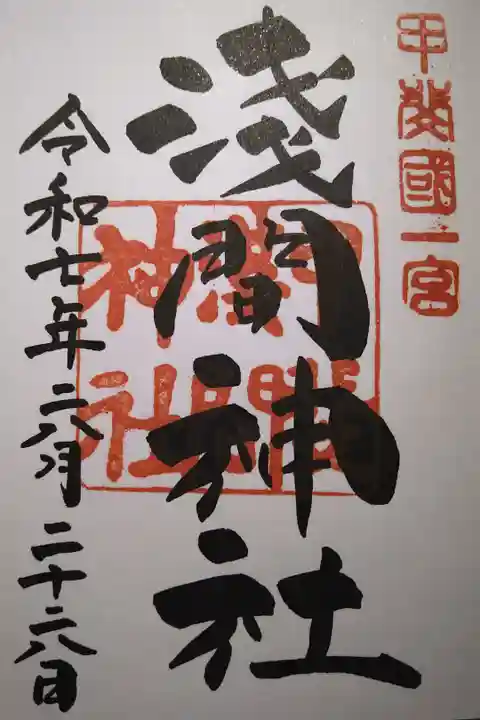 甲斐國一宮
淺間神社
淺間神社
令和七年六月二十六日